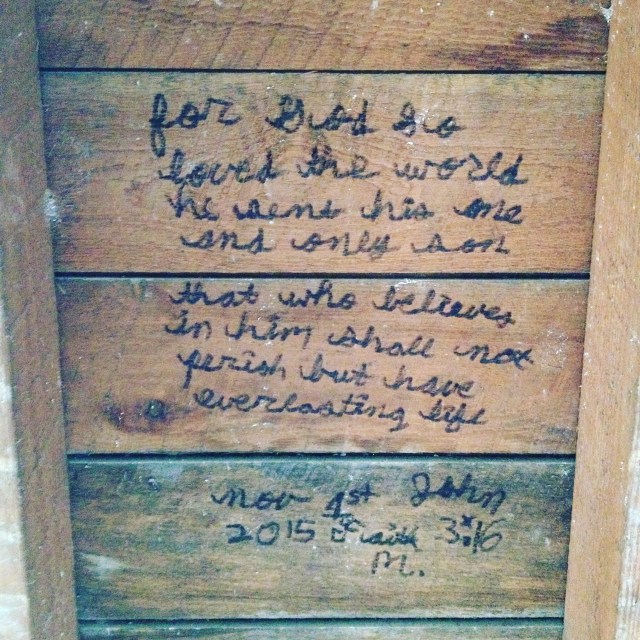 for God so
loved the world
he sent his one
and only son
that who believes
in him shall not
perish but have
everlasting life
Nov 1st John
2015 Faith 3:16
M.